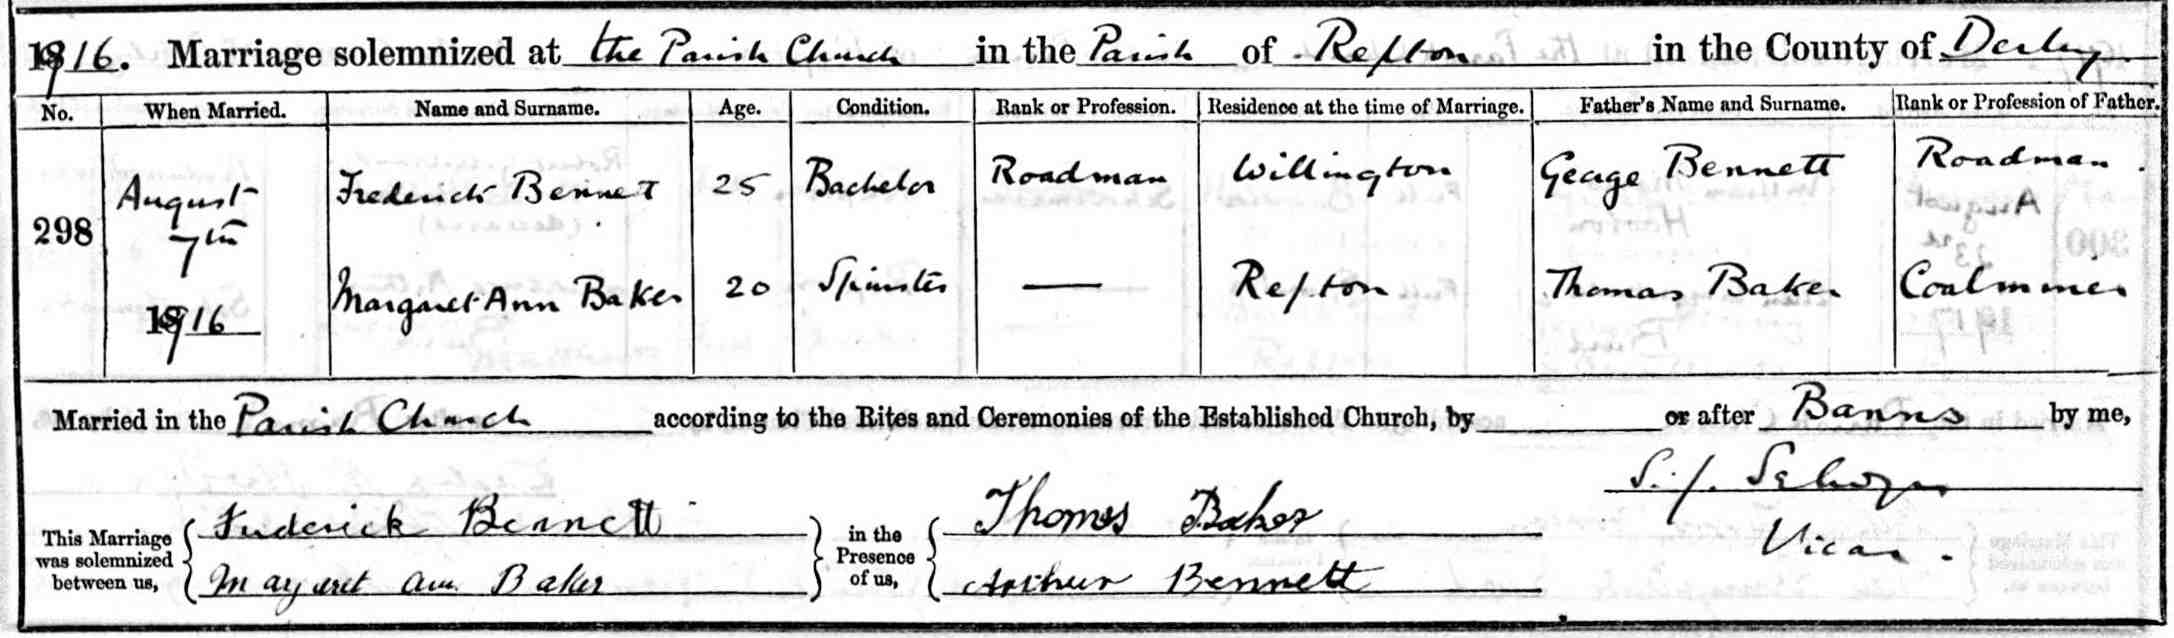 1916. Marriage solemnized at the Parish Church in the Parish of Repton in the County of Derby
No. When Married. Name and Surname. Age. Condition. Rank or Profession. Residence at the time of Marriage. Father's Name and Surname. Rank or Profession of Father.
298 August 7th 1916 Frederick Bennett 25 Bachelor Roadman Willington George Bennett Roadman
Margaret Ann Baker 20 Spinster — Repton Thomas Baker Coalminer
Married in the Parish Church according to the Rites and Ceremonies of the Established Church, by or after Banns by me,
S. J. Selwyn
Vicar.
This Marriage was solemnized between us, Frederick Bennett in the Presence of us, Thomas Baker
Margaret Ann Baker Arthur Bennett